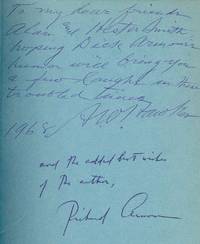 To my dear friends
Alan and Hester Smith
hoping Dick Armour's
humor will bring you
a few laughs in these
troubled times
1968
and the added best wishes
of the author,
Richard Armour